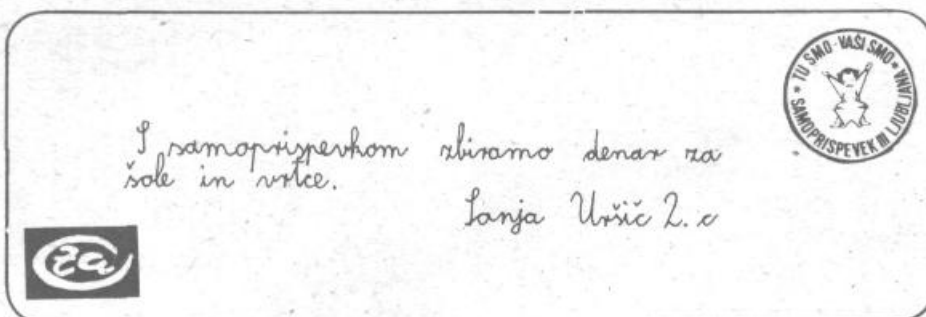 TU SMO - VAŠI SMO • SAMOPRISPEVEK III LJUBLJANA •
S samoprispevkom zbiramo denar za
šole in vrtce.
Sanja Uršič 2. c
za